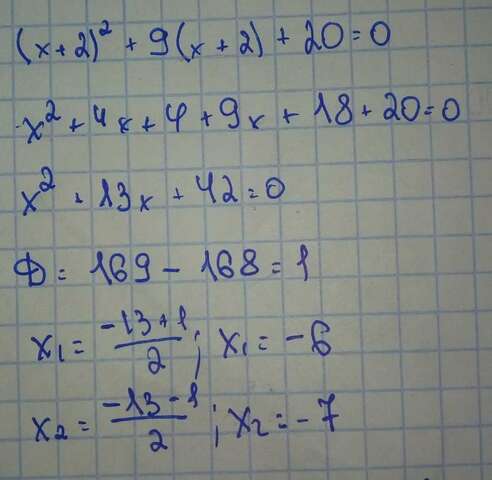 (x+2)² + 9(x+2) + 20 = 0
x² + 4x + 4 + 9x + 18 + 20 = 0
x² + 13x + 42 = 0
D = 169 - 168 = 1
x₁ = (-13+1)/2 ; x₁ = -6
x₂ = (-13-1)/2 ; x₂ = -7